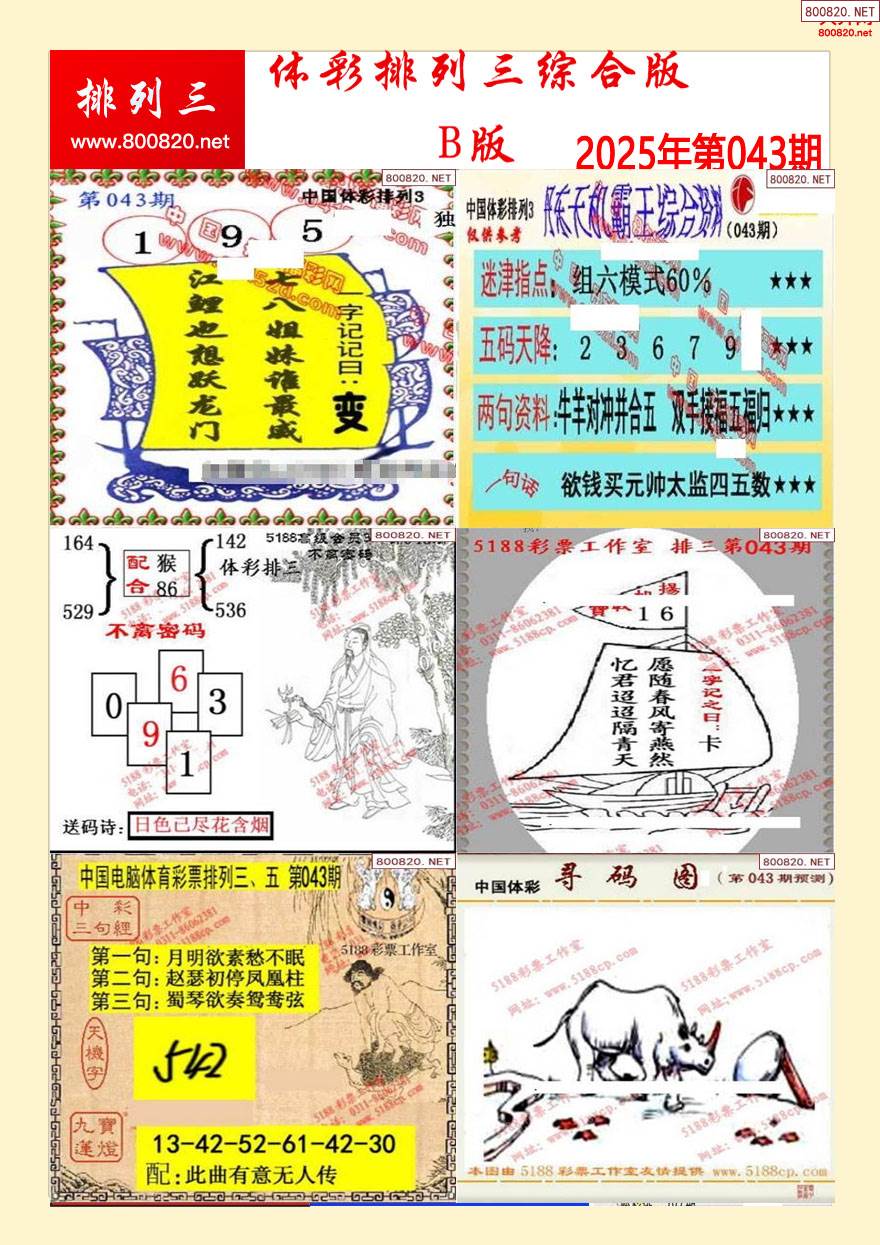 800820. NET
800820.net
排列三
www.800820.net
体彩排列三综合版
B版
2025年第043期
800820. NET
第043期
中国体彩排列3
独
1 9 5
一字记记曰：变
七八姐妹谁最威
江鲤也想跃龙门
800820. NET
中国体彩排列3
仅供参考
天机霸王综合资料
(043期)
迷津指点： 组六模式60% ★★★
五码天降： 2 3 6 7 9 ★★★
两句资料：牛羊对冲并合五 双手接福五福归★★★
一句话 欲钱买元帅太监四五数★★★
800820. NET
164
529
配 猴
合 86
142
536
5188高级会员
不离密码
体彩排三
不离密码
0 6 3
9 1
送码诗：日色已尽花含烟
5188彩票工作室
电话：0311-86062381
网址：www.5188cp.com
800820. NET
5188彩票工作室 排三第043期
16
一字记之曰：卡
愿随春风寄燕然
忆君迢迢隔青天
5188彩票工作室
电话：0311-86062381
网址：www.5188cp.com
800820. NET
中国电脑体育彩票排列三、五 第043期
中彩
三句经
5188彩票工作室
第一句：月明欲素愁不眠
第二句：赵瑟初停凤凰柱
第三句：蜀琴欲奏鸳鸯弦
天機字
542
九寶
蓮燈
13-42-52-61-42-30
配：此曲有意无人传
800820. NET
中国体彩 寻码图 (第043期预测)
5188彩票工作室
网址：www.5188cp.com
本图由5188彩票工作室友情提供 www.5188cp.com